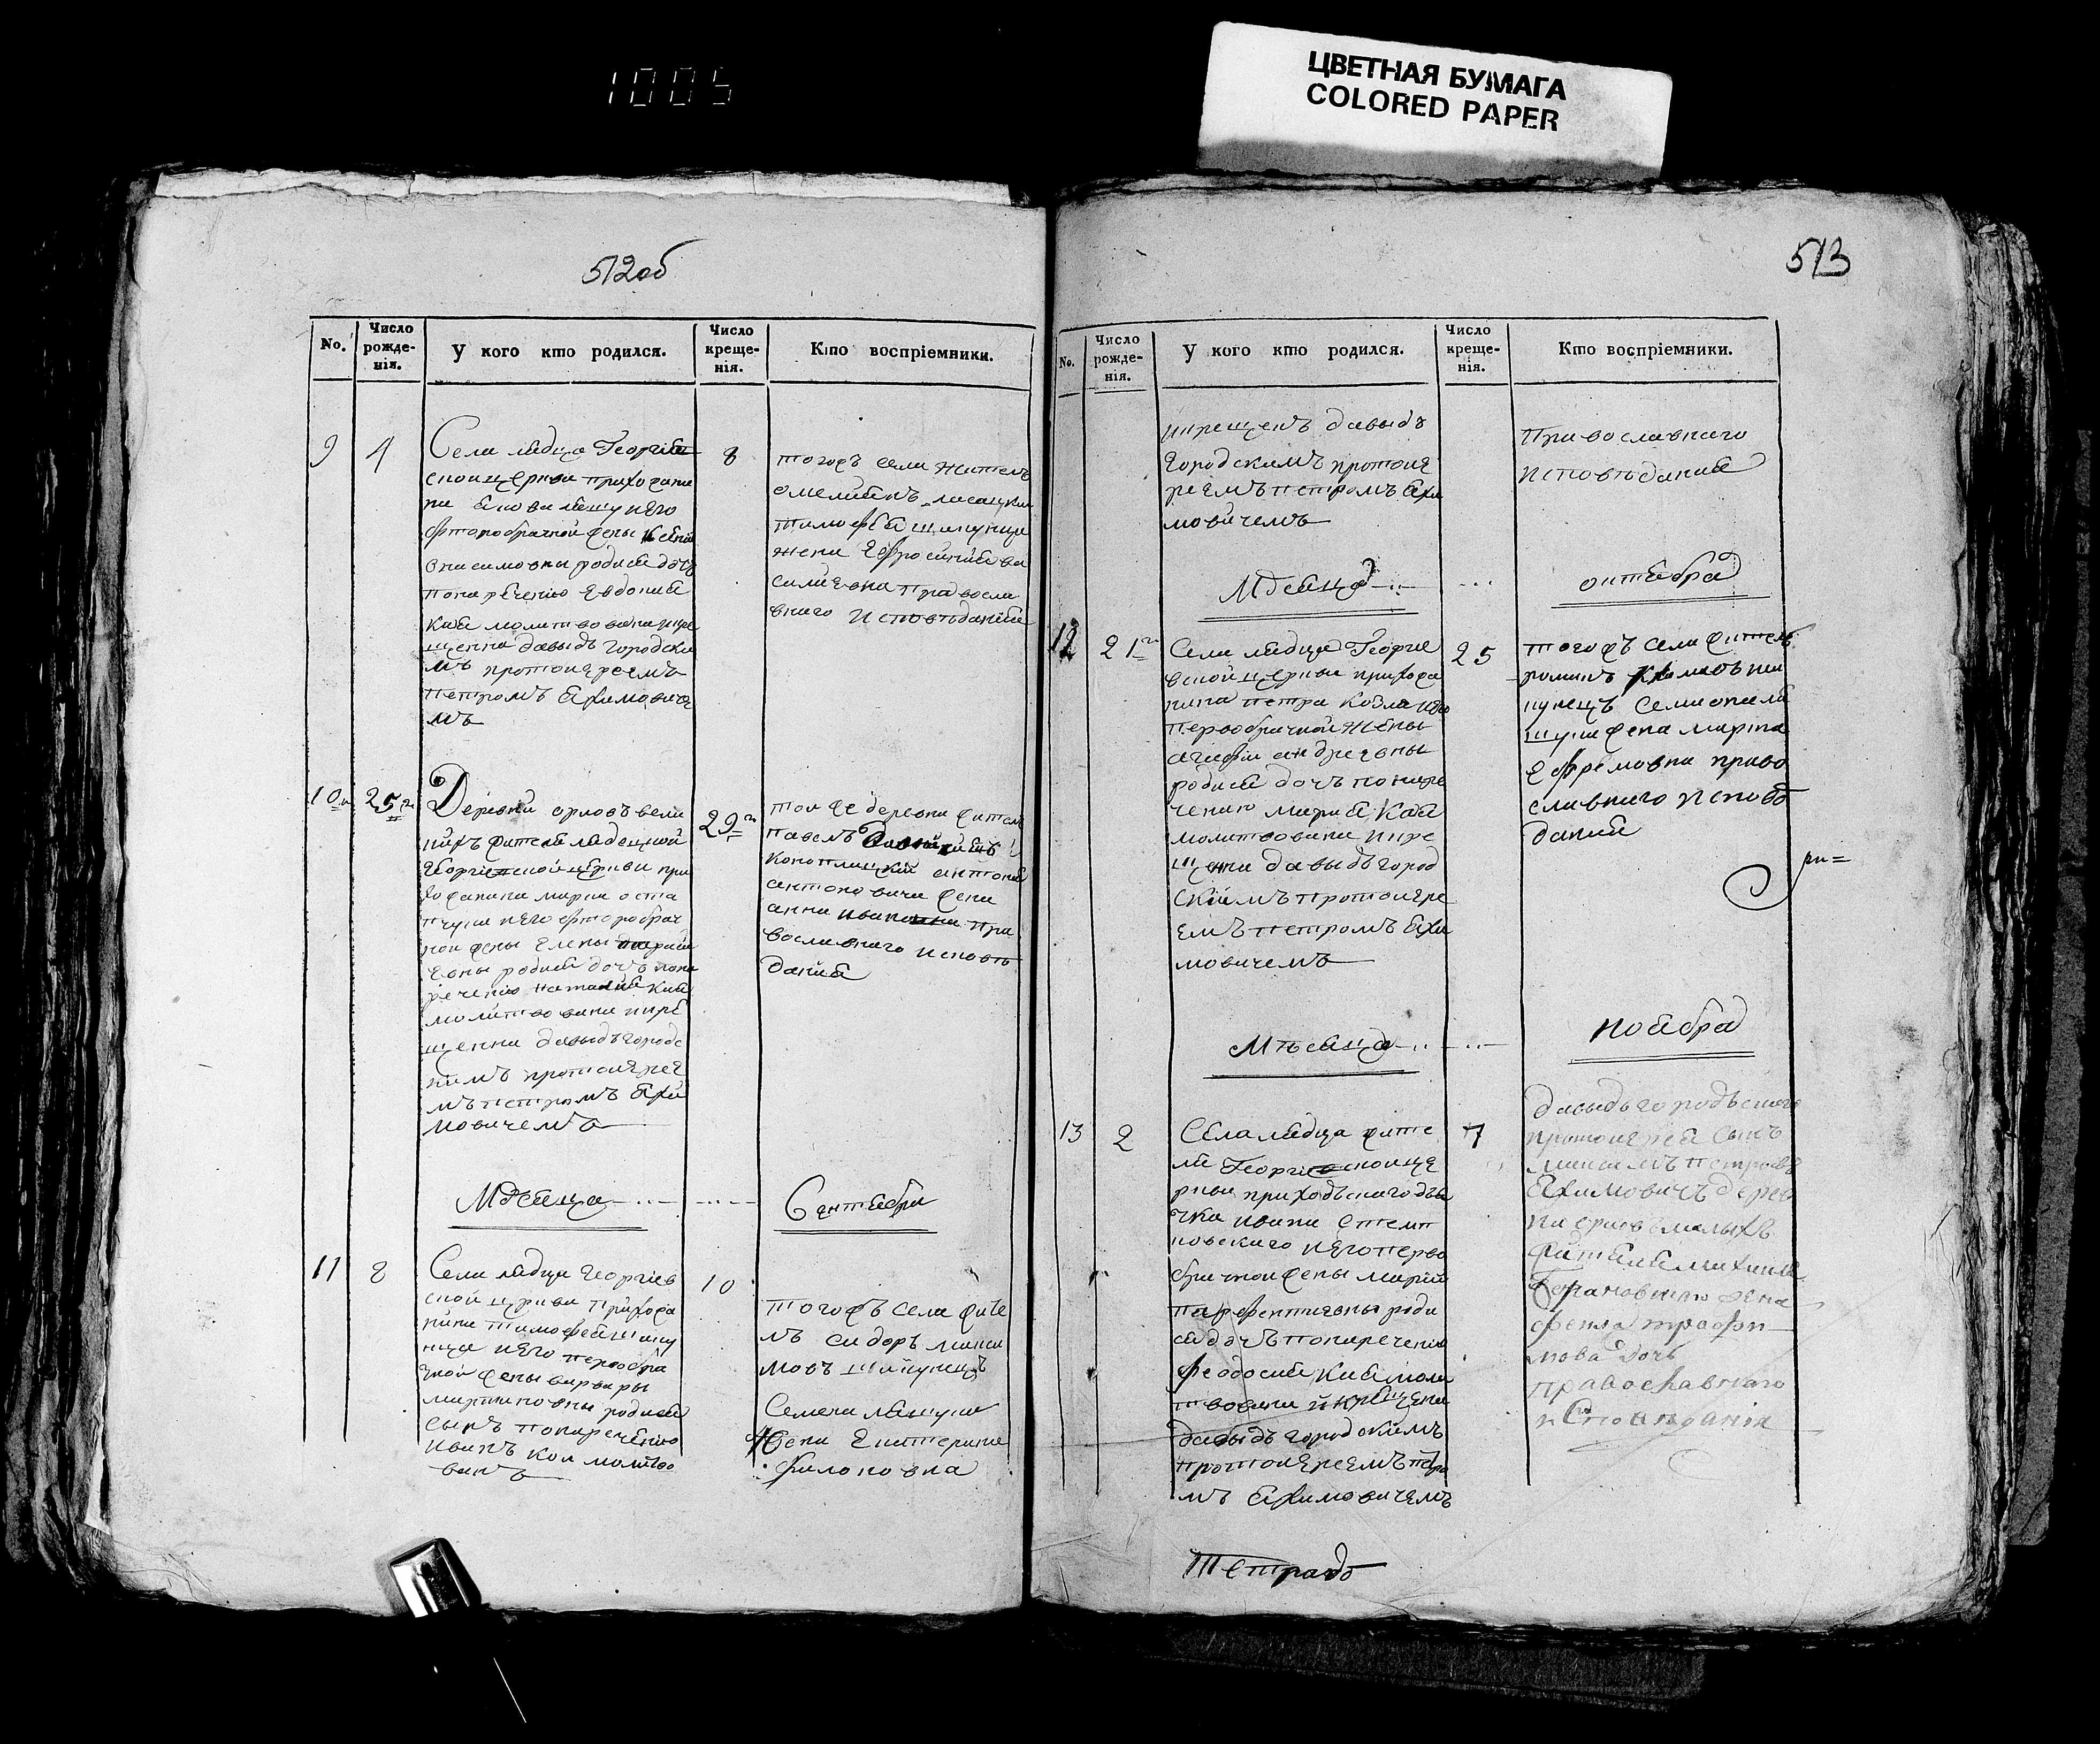 1005
ЦВЕТНАЯ БУМАГА
COLORED PAPER
512об
No.
Число рожде-нія.
У кого кто родился.
Число креще-нія.
Кто воспріемники.
9
1
8
Села лядца Георгіев
ской церкви прихожани
на
второбрачной жены
родися дочъ
понаречению Евдокия
кая молитвована икре
щенна давыдъ городски
мъ протоиереемъ
петромъ Яхимовиче
мъ
тогожъ села житель
тимофея шикунца
жена Ефросиния ва
силиевна правосла
внаго исповѣдания
10
25
29
Деревни орловъ вели
кихъ жителя лядецкой
Георгиевской церкви при
хожанина марка оста
пчука иего второбрач
ной жены Елены
евны родися дочъ пона
речению наталия кая
молитвована икре
щенна давыдъ городс
кимъ протоиерее
мъ петромъ Яхи
мовичемъ
той же деревни жител
павелъ
антоний
антоновича жена
анна ивановна пра
вославнаго исповѣ
дания
Мѣсяца
Сентября
11
8
10
Села лядца Георгиев
ской церкви прихожа
нина тимофея шику
нца иего первобра
чной жены варвары
мартиновны родися
сынъ понаречению
иванъ кой молитво
ванъ
тогожъ села жите
ль сидоръ макси
мовъ шикунецъ
Семена
жена Екатерина
филоновна
513
No.
Число рожде-нія.
У кого кто родился.
Число креще-нія.
Кто воспріемники.
икрещенъ давыдъ
городскимъ протоие
реемъ петромъ Яхи
мовичемъ
Православнаго
исповѣдания
Мѣсяца
октября
12
21
25
Села лядца Георгие
вской церкви прихожа
нина петра козла иего
первобрачной жены
агафии андреевны
родися дочъ понаре
чению мария кая
молитвована икре
щенна давыдъ город
скимъ протоиере
емъ петромъ Яхи
мовичемъ
тогожъ села житель
романъ климовъ ши
кунецъ семиона
жена марта
Ефремовна право
славнаго исповѣ
дания
Мѣсяца
ноября
13
2
7
Села лядца жите
ля Георгиевской це
ркви приходскаго дья
чка ивана
иего перво
брачной жены марии
парфентиевны роди
ся дочъ понаречению
феодосия кая моли
твована и крещена
давыдъ городскимъ
протоиереемъ петро
мъ Яхимовичемъ
давыдъгородъскаго
протоиерея сынъ
максимъ петровъ
Яхимовичъ дерев
ни орловъ малыхъ
жителя михаила
жена
фекла трофи
мова дочь
православнаго
исповѣдания
Тетрадь